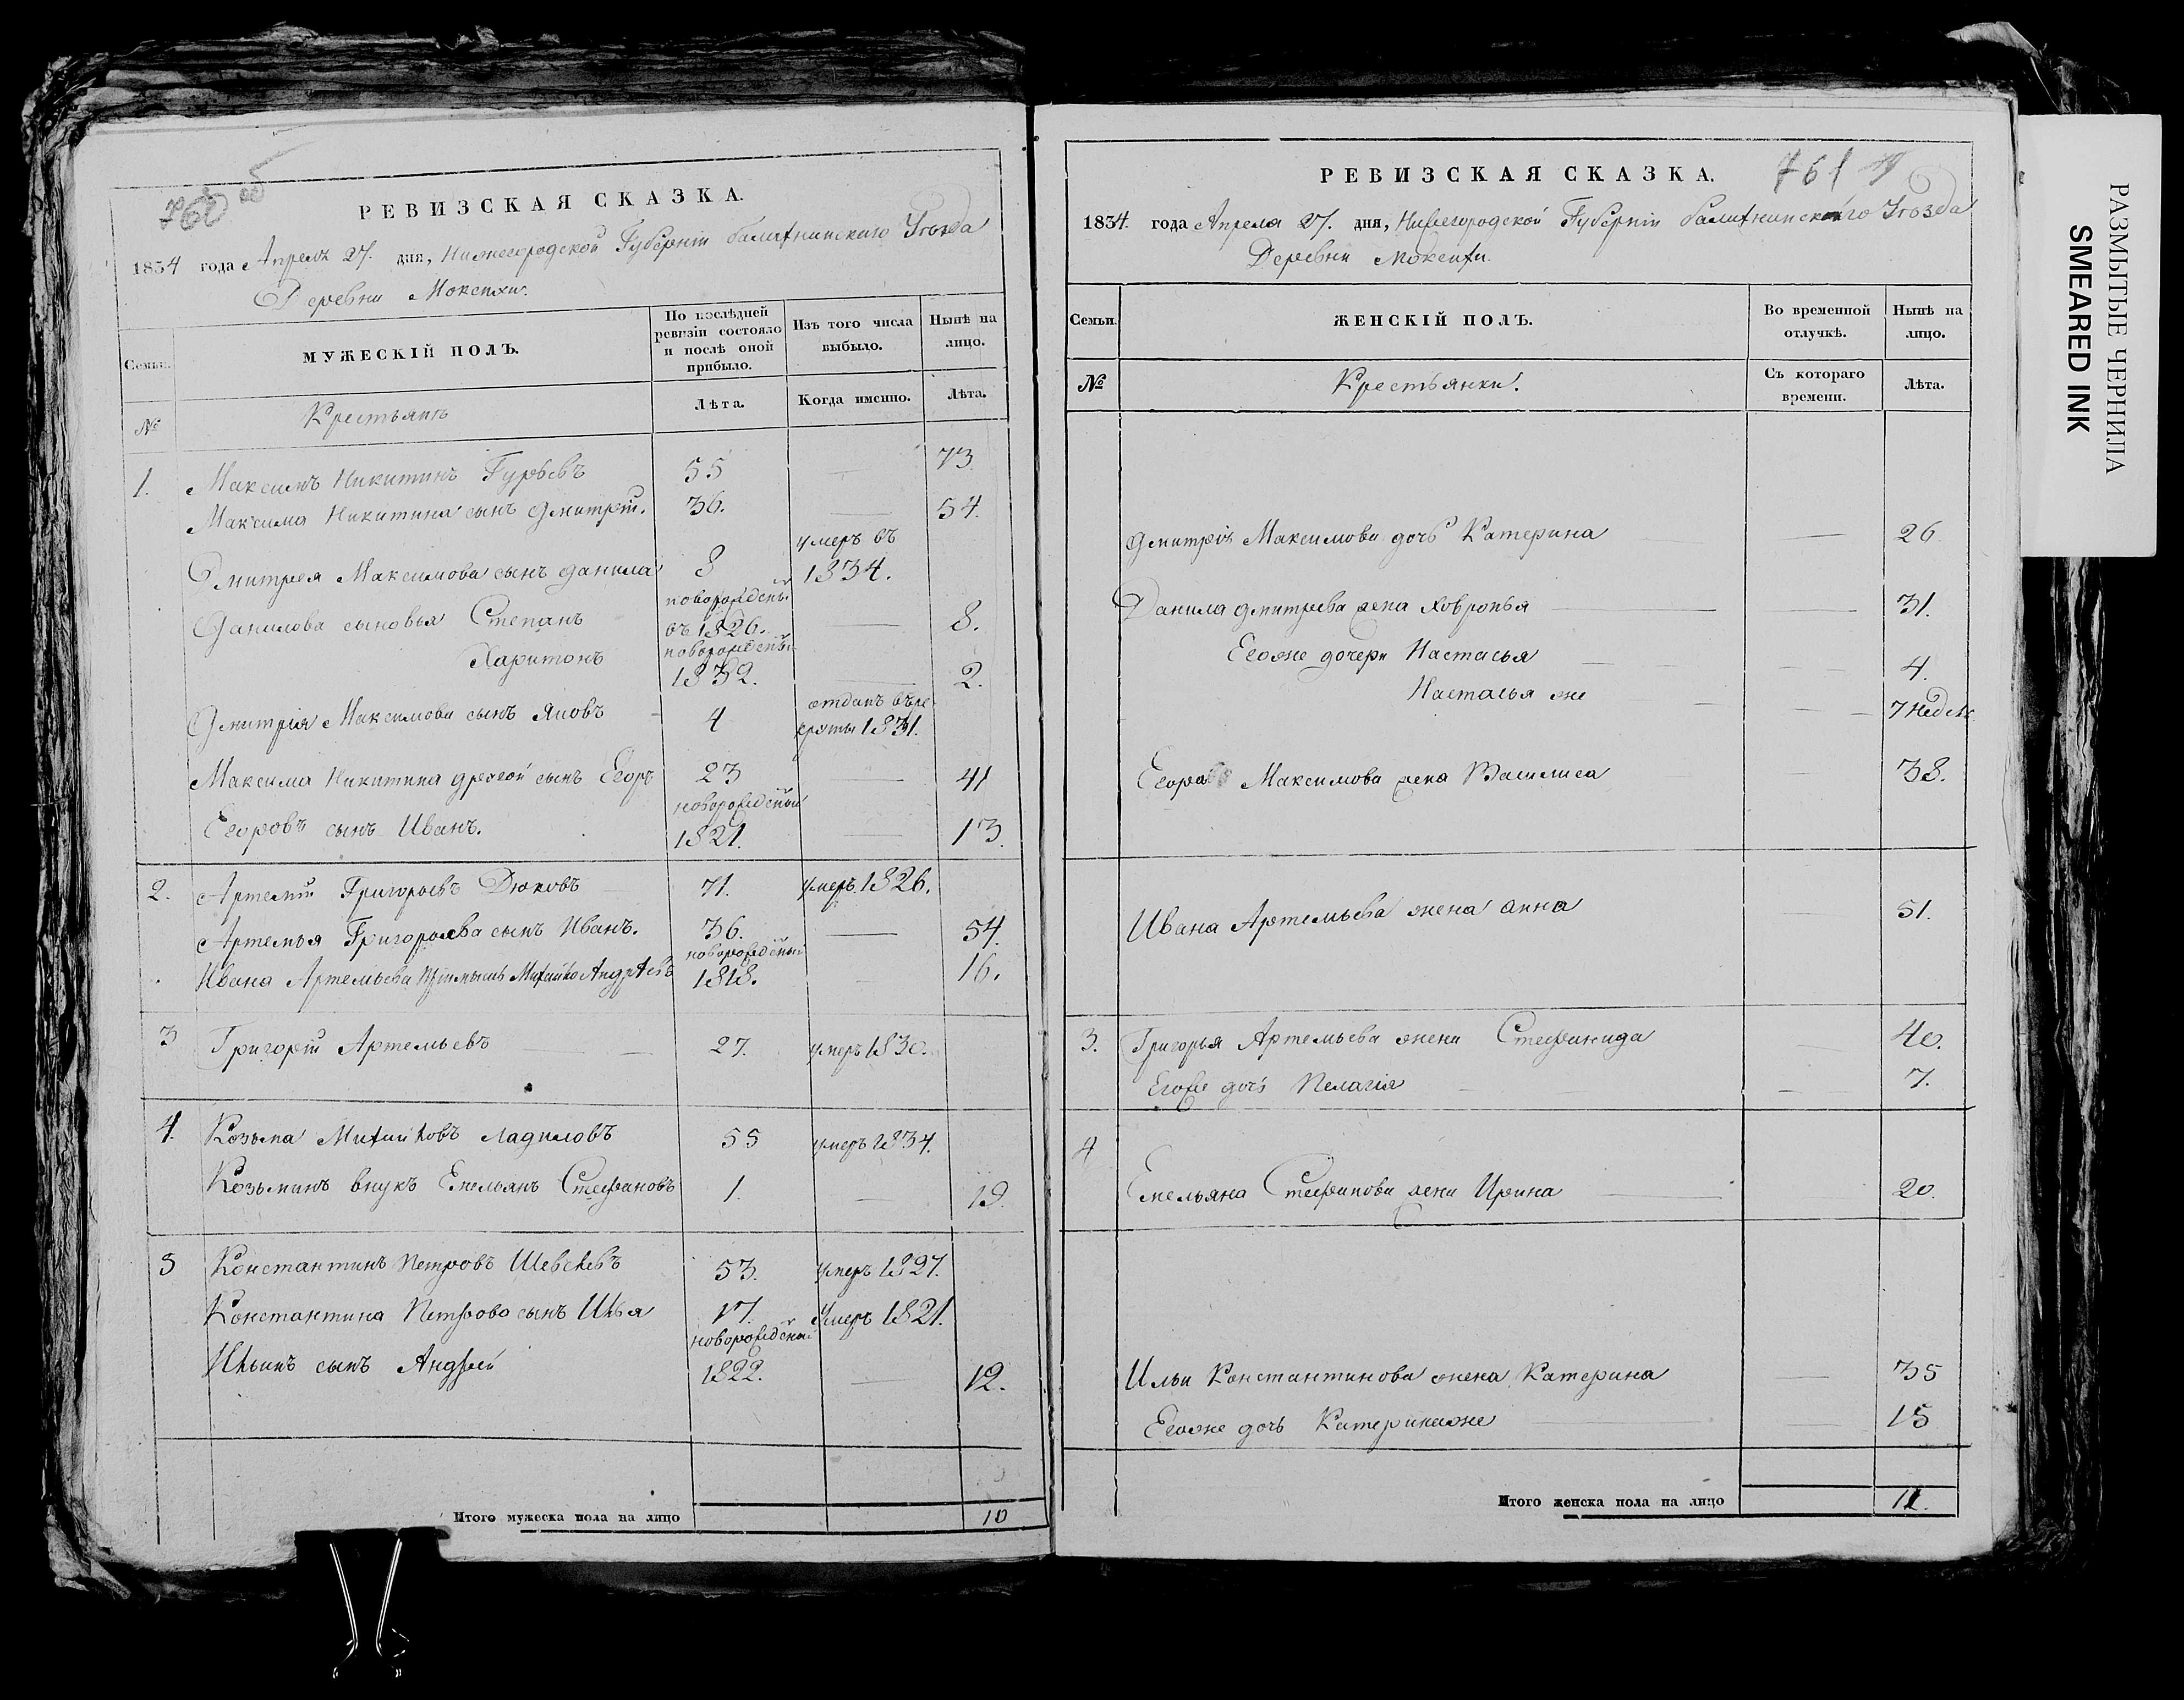 РЕВИЗСКАЯ СКАЗКА.
1834 года Апреля 27. дня, Нижегородской Губернiи Балахнинскаго Уѣзда
Деревни Мокеихи.
Семьи.
МУЖЕСКIЙ ПОЛЪ.
По послѣдней ревизiи состояло и послѣ оной прибыло.
Изъ того числа выбыло.
Нынѣ на лицо.
№
Крестьянъ
Лѣта.
Когда именно.
Лѣта.
1. Максимъ Никитинъ Гурьевъ 55 73
Максима Никитина сынъ Дмитрей. 36. 54.
Дмитрея Максимова сынъ Данила 8 умеръ въ 1834.
Данилова сыновья Степанъ новорожденый въ 1826. 8.
Харитонъ новорожденый 1832. 2.
Дмитрiя Максимова сынъ Яковъ 4 отданъ въ рекруты 1831.
Максима Никитина другой сынъ Егоръ 23 41
Егоровъ сынъ Иванъ. новорожденый 1821. 13.
2. Артемiй Григорьевъ Дюковъ 71. умеръ 1826.
Артемья Григорьева сынъ Иванъ. 36. 54.
Ивана Артемьева Михайло Андрѣевъ новорожденый 1818. 16.
3 Григорiй Артемьевъ 27. умеръ 1830.
4. Козьма Михайловъ Ладиловъ 55 умеръ 1834.
Козьминъ внукъ Емельянъ Стефановъ 1. 19.
5 Константинъ Петровъ 53. умеръ 1827.
Константина Петрова сынъ Илья 17. умеръ 1821.
Ильинъ сынъ Андрей новорожденый 1822. 12.
Итого мужеска пола на лицо 10
РЕВИЗСКАЯ СКАЗКА. 761
1834. года Апреля 27. дня, Нижегородской Губернiи Балахнинскаго Уѣзда
Деревни Мокеихи.
Семьи.
ЖЕНСКIЙ ПОЛЪ.
Во временной отлучкѣ.
Нынѣ на лицо.
№
Крестьянки.
Съ котораго времени.
Лѣта.
Дмитрiя Максимова дочь Катерина 26
Данила Дмитрева жена Ховронья 31.
Егоже дочери Настасья 4.
Настасья же 7 недель
Егора Максимова жена Василиса 38.
Ивана Артемьева жена Анна 51.
3. Григорья Артемьева жена Стефанида 40.
Егоже дочь Пелагiя 7.
4
Емельяна Стефанова жена Ирина 20.
Ильи Константинова жена Катерина 35
Егоже дочь Катерина же 15
Итого женска пола на лицо 11.
РАЗМЫТЫЕ ЧЕРНИЛА
SMEARED INK